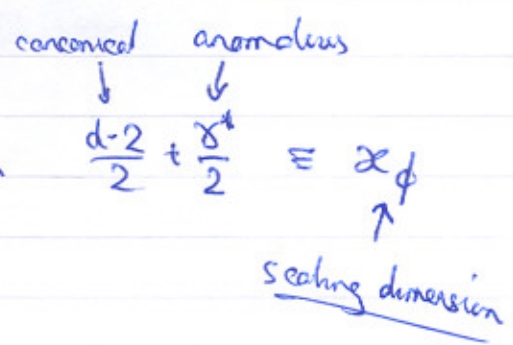 canonical anomalous
↓ ↓
d-2/2 + γ*/2 ≡ x_ϕ
↑
scaling dimension